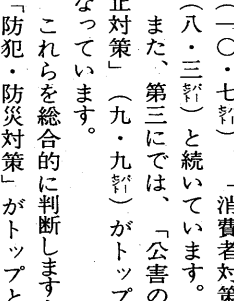 (一〇・七㌫)「消費者対策
(八・三㌫)と続いています。
また、第三にでは、「公害の
正対策」(九・九㌫)がトップ
なっています。
これらを総合的に判断します
「防犯・防災対策」がトップと